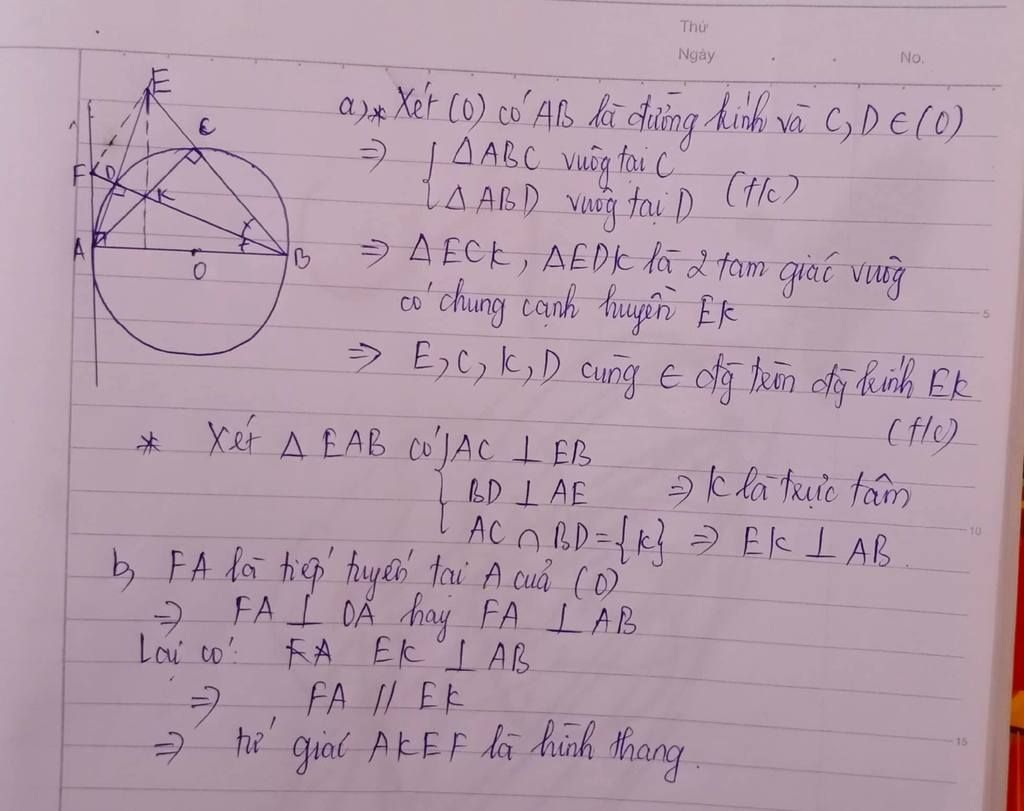 Thứ
Ngày
No.
E
C
F
D
K
A
O
B
a, * Xét (O) có AB là đường kính và C, D ∈ (O)
=> { ΔABC vuôg tại C
ΔABD vuôg tại D (t/c)
=> ΔECK, ΔEDK là 2 tam giác vuôg
có chung cạnh huyền EK
=> E, C, K, D cùng ∈ đg tròn đg kính EK
(t/c)
* Xét ΔEAB có { AC ⊥ EB
BD ⊥ AE => K là trực tâm
AC ∩ BD = {K} => EK ⊥ AB.
b, FA là tiếp tuyến tại A của (O)
=> FA ⊥ OA hay FA ⊥ AB
Lại có: EK ⊥ AB
=> FA // EK
=> tứ giác AKEF là hình thang.
5
10
15